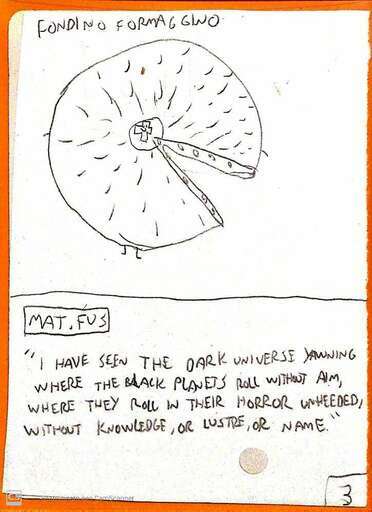 FONDINO FORMAGGINO
MAT. FUS
"I HAVE SEEN THE DARK UNIVERSE YAWNING
WHERE THE BLACK PLANETS ROLL WITHOUT AIM,
WHERE THEY ROLL IN THEIR HORROR UNHEEDED,
WITHOUT KNOWLEDGE, OR LUSTRE, OR NAME."
3
CamScanner